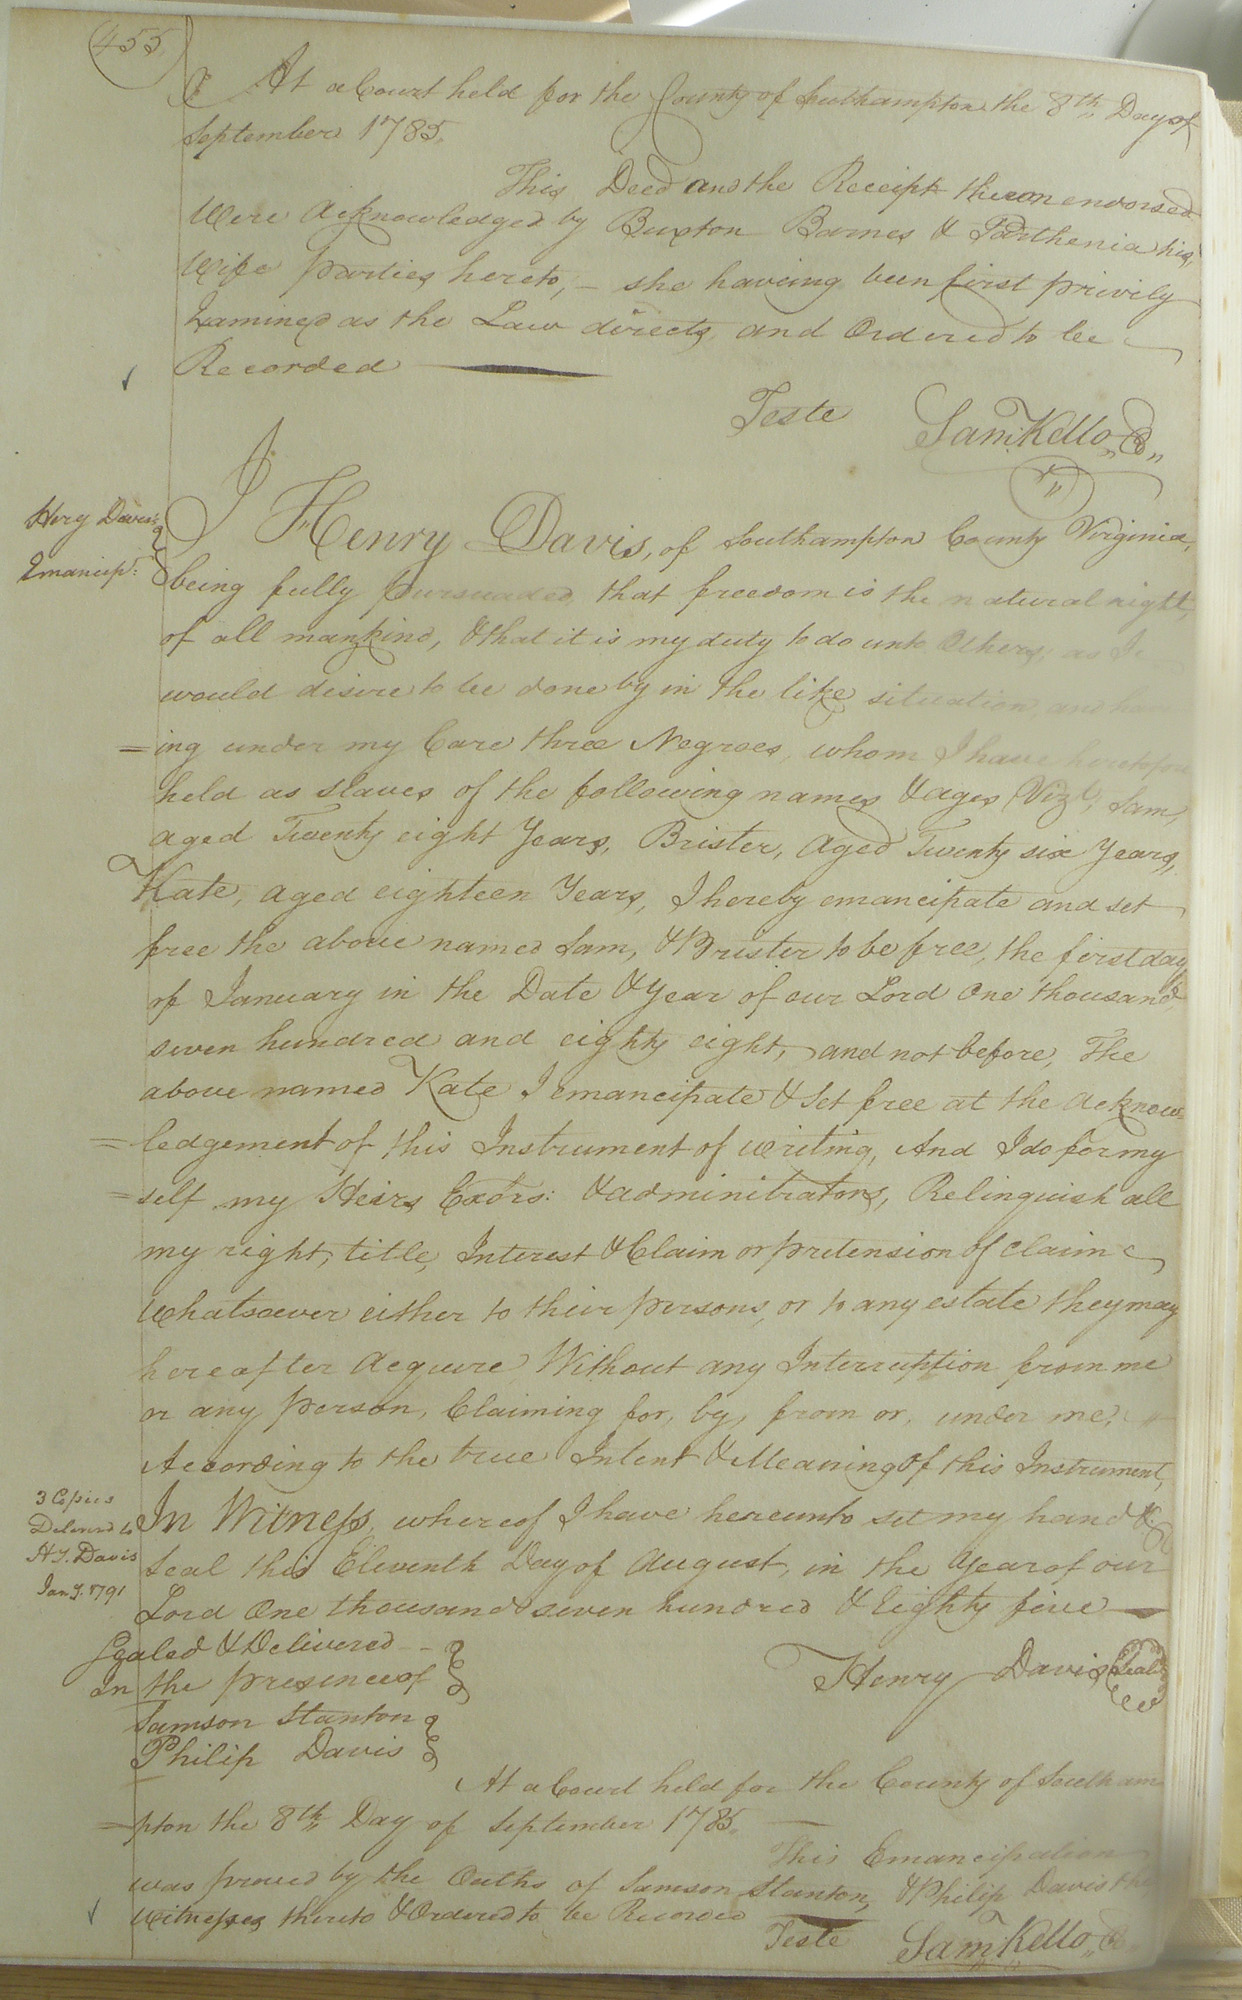 455
At a Court held for the County of Southampton the 8th Day of
September 1785.
This Deed and the Receipt thereon endorsed
Were Acknowledged by Buxton Barnes & Parthenia his
Wife parties hereto, - she haveing been first privily
Examined as the Law directs and Ordered to be
Recorded
Teste Sam: Kello, C,,
Henry Davis's
Emancip:
I Henry Davis, of Southampton County Virginia,
being fully pursuaded that freedom is the natural right,
of all mankind, & that it is my duty to do unto Others, as I
would desire to be done by in the like situation, and hav
=ing under my Care three Negroes, whom I have heretofore
held as slaves of the following names & ages (Vizt, Sam,
aged Twenty eight Years, Brister, Aged Twenty six Years,
Kate, aged eighteen Years, I hereby emancipate and set
free the above named Sam, & Brister to be free, the first day
of January in the Date & Year of our Lord One thousand
seven hundred and eighty eight, and not before, The
above named Kate I emancipate & set free at the Acknow=
=ledgement of this Instrument of writing, And I do for my
=self my Heirs Exôrs: & adminitrators, Relinquish all
my right, title, Interest & Claim or pretension of claim
Whatsoever either to their persons, or to any estate they may
hereafter Acquire Without any Interruption from me
or any person, Claiming for, by, from or, under me,
According to the true Intent & Meaning of this Instrument,
In Witness, whereof I have hereunto set my hand &
Seal this Eleventh Day of August, in the Year of our
Lord One thousand seven hundred & Eighty five
3 Copies
Deliverd to
H. Davis
Jany. 1791
Sealed & Delivered
In the presence of
Samson Stanton
Philip Davis
Henry Davis Seal
At a Court held for the County of Southam
=pton the 8th Day of September 1785.
This Emancipation
was proved by the Oaths of Samson Stanton, & Philip Davis the
Witnesses thereto & Ordered to be Recorded
Teste Sam: Kello, C,,